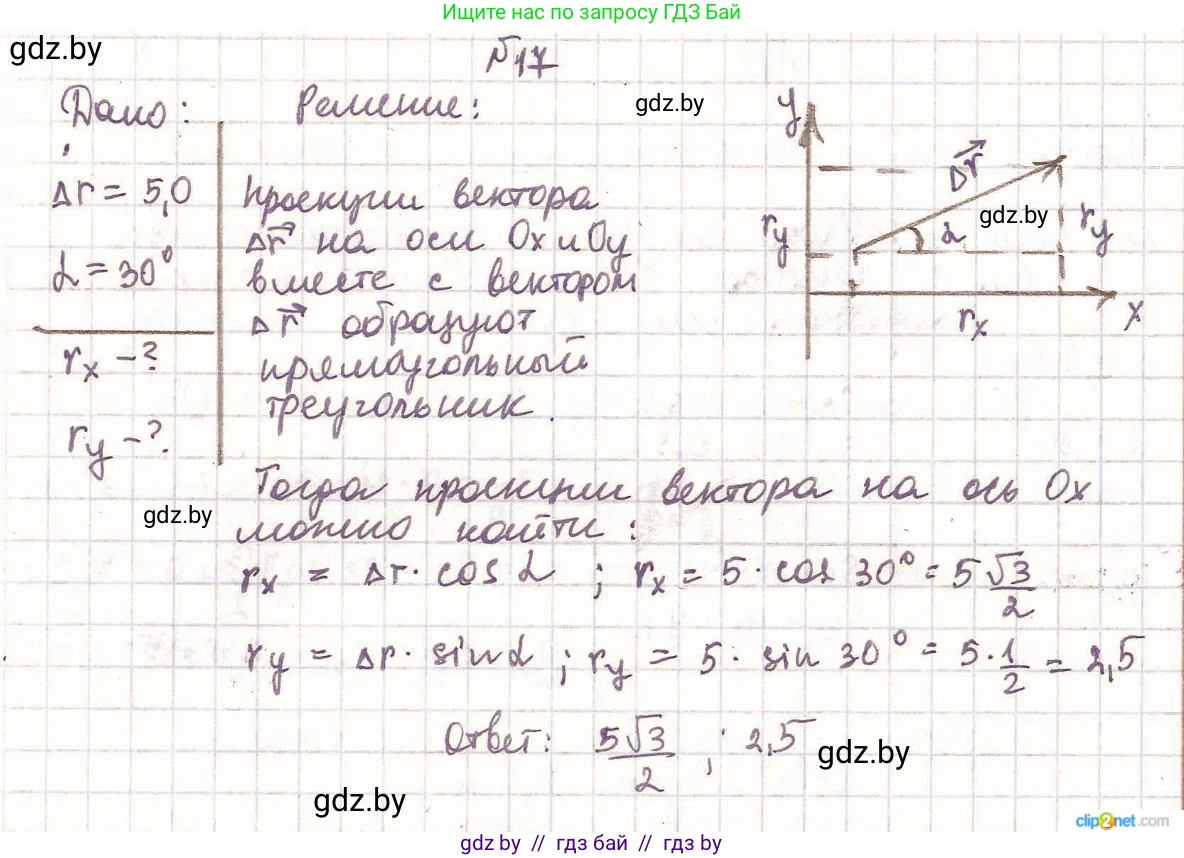 Ищите нас по запросу ГДЗ Бай
gdz.by
№17
Дано:
Решение:
gdz.by
Δr = 5,0
α = 30°
rx - ?
ry - ?.
Проекции вектора
Δr⃗ на оси Ox и Oy
вместе с вектором
Δr⃗ образуют
прямоугольный
треугольник.
y
Δr⃗
gdz.by
ry
α
ry
rx
x
Тогда проекции вектора на ось Ox
gdz.by
можно найти:
rx = Δr · cos α ; rx = 5 · cos 30° = 5 √3/2
ry = Δr · sin α ; ry = 5 · sin 30° = 5 · 1/2 = 2,5
Ответ: 5√3/2 ; 2,5
gdz.by
gdz.by
clip2net.com
gdz.by // гдз бай // gdz.by